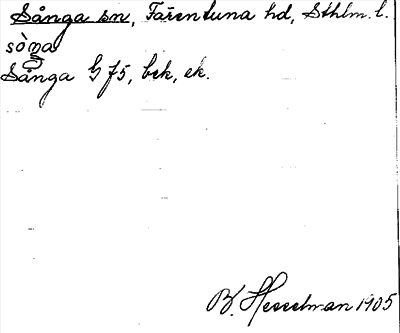 Sånga sn, Färentuna hd, Sthlm. l.
sòŋa
Sånga G f5, bck, ek.
B. Hesselman 1905